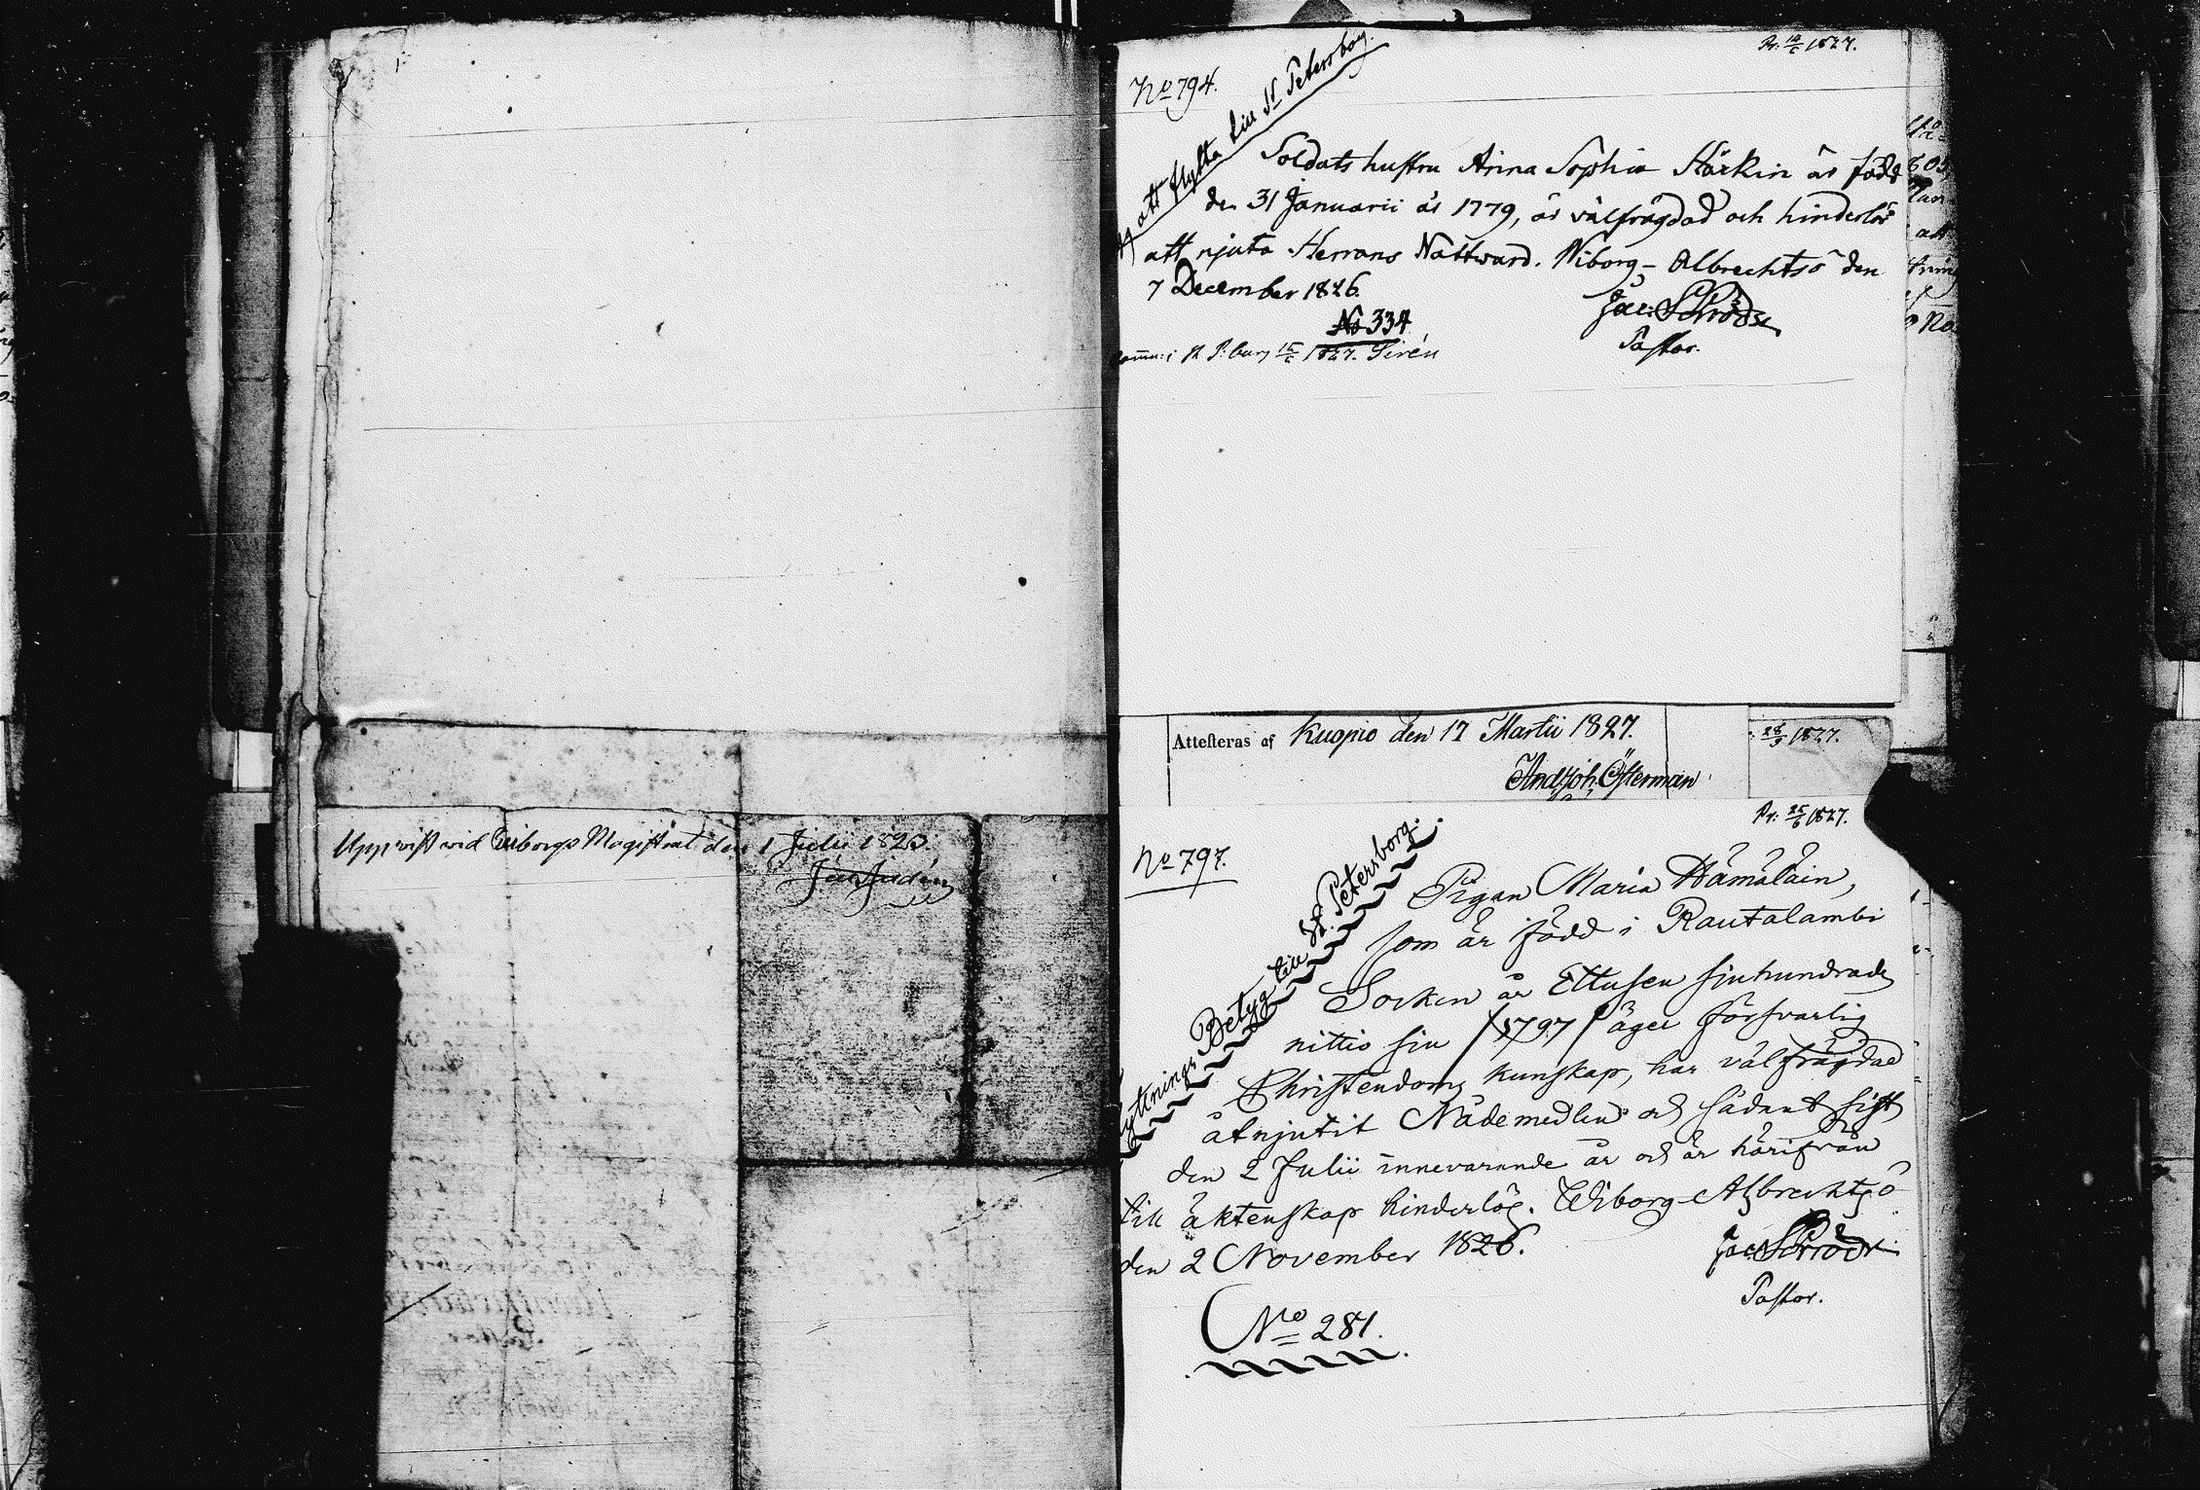 Uppvist vid Wiborgs Magistrat den 1 Julii 1825.
No 794.
Pr. 12/6 1827.
att flytta till St Petersborg.
Soldats hustru Anna Sophia Härkin är född
den 31 Januarii år 1779, är välfrägdad och hinderlös
att njuta Herrans Nattward. Wiborg - Albrechtsö den
7 December 1826.
Jac: Schröder
Pastor.
No 334
i St P:burg 12/6 1827. Sirén
Attesteras af Kuopio den 17 Martii 1827.
And. Joh. Österman
28/3 1827.
Pr: 25/6 1827.
No 797.
Flyttnings Betyg till St. Petersborg.
Pigan Maria Hämäläin,
som är född i Rautalambi
Socken år Ettusen sjuhundrade
nittio sju /1797/ äger försvarlig
Christendoms kunskap, har välfrägdad
åtnjutit Nådemedlen och sådant sist
den 2 Julii innevarande år och är härifrån
till äktenskap hinderlös. Wiborg-Albrechtsö
den 2 November 1826.
Jac: Schröder
Pastor.
No 281.